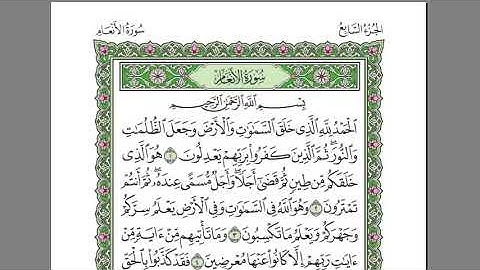 الجزء السابع
سورة الأنعام
سورة الأنعام
بسم الله الرحمن الرحيم
الْحَمْدُ لِلَّهِ الَّذِي خَلَقَ السَّمَٰوَٰتِ وَالْأَرْضَ وَجَعَلَ الظُّلُمَٰتِ
وَالنُّورَ ثُمَّ الَّذِينَ كَفَرُوا بِرَبِّهِمْ يَعْدِلُونَ ١ هُوَ الَّذِي
خَلَقَكُم مِّن طِينٍ ثُمَّ قَضَىٰ أَجَلًا وَأَجَلٌ مُّسَمًّى عِندَهُ ثُمَّ أَنتُمْ
تَمْتَرُونَ ٢ وَهُوَ اللَّهُ فِي السَّمَٰوَٰتِ وَفِي الْأَرْضِ يَعْلَمُ سِرَّكُمْ
وَجَهْرَكُمْ وَيَعْلَمُ مَا تَكْسِبُونَ ٣ وَمَا تَأْتِيهِم مِّنْ ءَايَةٍ مِّنْ
ءَايَٰتِ رَبِّهِمْ إِلَّا كَانُوا عَنْهَا مُعْرِضِينَ ٤ فَقَدْ كَذَّبُوا بِالْحَقِّ